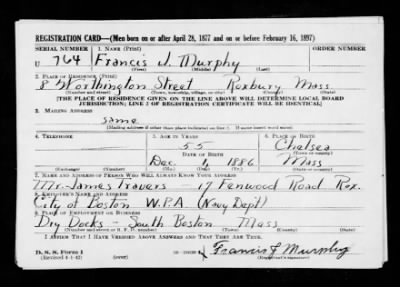 REGISTRATION CARD—(Men born on or after April 28, 1877 and on or before February 16, 1897)
SERIAL NUMBER 1. NAME (Print) ORDER NUMBER
U 764 Francis J. Murphy
(First) (Middle) (Last)
2. PLACE OF RESIDENCE (Print)
8 Worthington Street Roxbury Mass.
(Number and street) (Town, township, village, or city) (County) (State)
[THE PLACE OF RESIDENCE GIVEN ON THE LINE ABOVE WILL DETERMINE LOCAL BOARD
JURISDICTION; LINE 2 OF REGISTRATION CERTIFICATE WILL BE IDENTICAL]
3. MAILING ADDRESS
same
[Mailing address if other than place indicated on line 2. If same insert word same]
4. TELEPHONE 5. AGE IN YEARS 6. PLACE OF BIRTH
55 Chelsea
DATE OF BIRTH (Town or county)
Dec. 1, 1886 Mass
(Mo.) (Day) (Yr.) (State or country)
7. NAME AND ADDRESS OF PERSON WHO WILL ALWAYS KNOW YOUR ADDRESS
Mr. James Travers 17 Fenwood Road Rox.
8. EMPLOYER'S NAME AND ADDRESS
City of Boston W.P.A. (Navy Dept)
9. PLACE OF EMPLOYMENT OR BUSINESS
Dry Docks - South Boston Mass
(Number and street or R. F. D. number) (Town) (County) (State)
I AFFIRM THAT I HAVE VERIFIED ABOVE ANSWERS AND THAT THEY ARE TRUE.
Francis J Murphy
D. S. S. Form 1
(Revised 4-1-42) (over) (Registrant's signature)